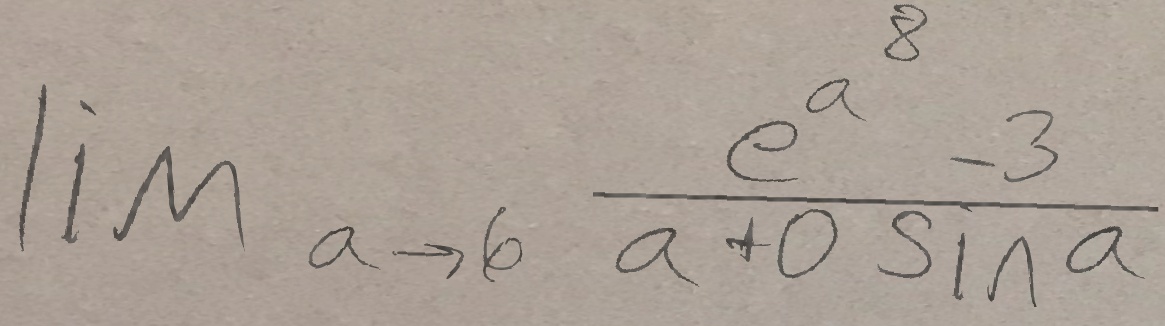 \lim_{a \to 6} \frac{e^{a^8} - 3}{a + 0 \sin a}